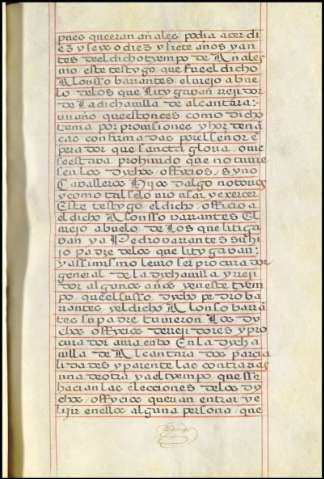 pues queeran añales podia acer di
ez y seys o diez y siete años y an
tes deel dicho tiempo de Añales
mo este testygo que fue el dicho
Alonsso barantes el viejo abue
lo delos que litygavan rejidor
de la dicha villa de alcantara:
un año questonces como dicho
tema por provisiones y hor denan
cas confirmadas por el señor e
perador que sancta gloria. ove
se estava prohivido que no tuvie
sen los dychos officios, syno
Cavalleros Hijos dalgo notorios
y como tal sse lo vio usar y exercer
Este testygo el dicho officio a
el dicho Alonsso varantes El
viejo abuelo de Los que litiga
van y a Pedro varantes su hi
jo padre de los que litygavan:
y assimismo le vio ser procurador
general de la dycha villa y reji
dor algunos años y en este tiem
po que el susso dycho pedro ba
rrantes y el dicho Alonso bara
tes su padre tuvieron Los dy
chos offycios de rejidores y pro
curador avia en do En la dycha
villa de Alcantara dos parcia
lidades y parentelas contrarias
una de otra y a el tiempo que sse
hacian las elecciones de los dy
chos offycios querian entrar y e
lijir en ellos alguna persona que